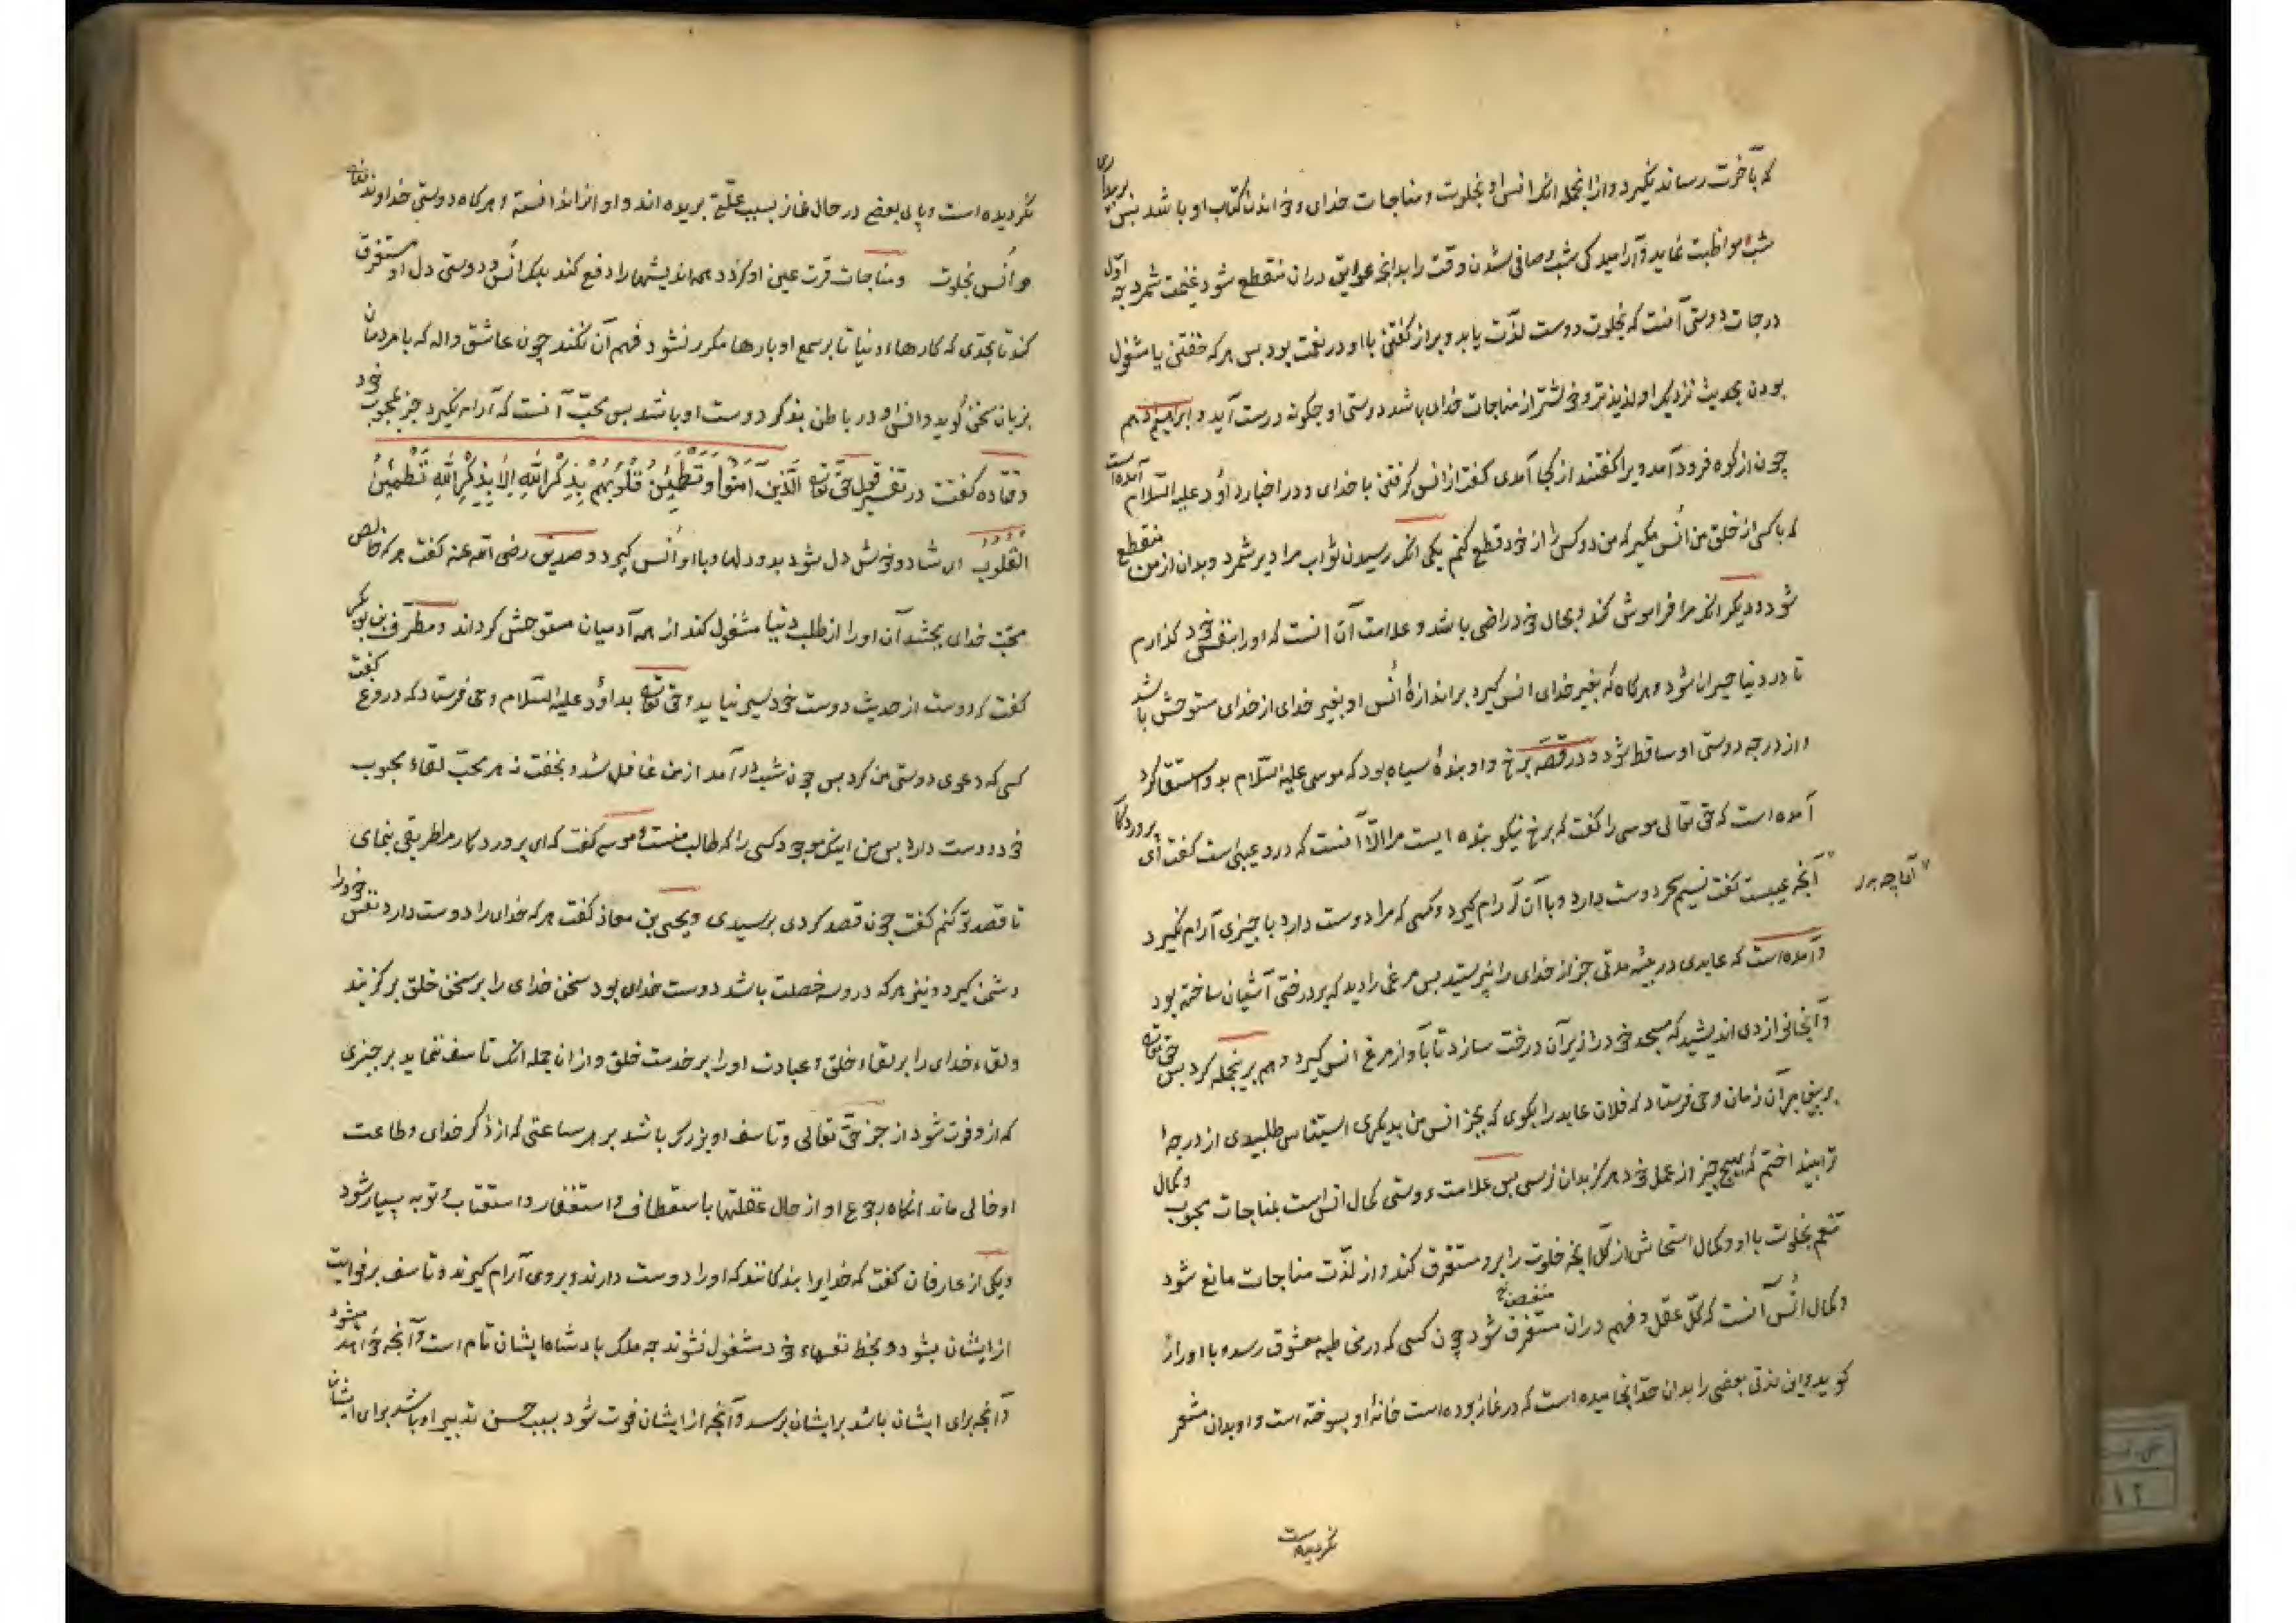 که بآخرت رساند نگیرد و از انجمله انک انس او بخلوت و مناجات خدای و خواندن کتاب او باشد بس بر بیداری
شب مواظبت نماید و آرامیدکی شب و صافی شدن وقت را بدانچه عوایق دران منقطع شود غنیمت شمرد جه اوّل
درجات دوستی آنست که بخلوت دوست لذّت یابد و براز کفتن با او در نعمت بود بس هر که خفتن یا مشغول
بودن بحدیث نزدیک او لذیذتر و خوشتر از مناجات خدای باشد دوستی او جکونه درست آید و ابراهیم ادهم
چون از کوه فرود آمد ویرا کفتند از کجا آمدی کفت از انس کرفتن با خدای و در اخبار داؤد علیه السّلام آمده است
که با کسی از خلق من اُنس مکیر که من دو کس را از خود قطع کنم یکی انک رسیدن ثواب مرا دیر شمرد و بدان از من منقطع
شود و دیکر انک مرا فراموش کند و بحال خود راضی باشد و علامت آن آنست که او را بنفس خود کذارم
تا در دنیا حیران شود و هرکاه که بغیر خدای انس کیرد بر اندازهٔ اُنس او بغیر خدای از خدای متوحش باشد
و از درجه دوستی او ساقط شود و در قصّه برخ و او بندهٔ سیاه بود که موسی علیه السّلام بدو استسقا کرد
آمده است که حق تعالی موسی را کفت که برخ نیکو بنده ایست مرا الّا آنست که درو عیبی است کفت ای پروردکار
آنجه عیبست کفت نسیم سحر دوست دارد و با آن آرام کیرد و کسی که مرا دوست دارد با جیزی آرام نکیرد
و آمده است که عابدی در بیشه مدتی جز از خدای را نپرستید بس مرغی را دید که بر درختی آشیان ساخته بود
و آنجا می اندیشید که مسجد خود را زیر آن درخت سازد تا بآواز مرغ انس کیرد و هم برینجمله کرد بس حق تعالی
بر پیغامبر آن زمان وحی فرستاد که فلان عابد را بکوی که بجز انس من بدیکری استیناس طلبیدی از درجهٔ
ترا بینداختم که بهیچ چیز از عمل خود هرکز بدان نرسی بس علامت دوستی کمال انس است بمناجات محبوب و کمال
تنعم بخلوت با او و کمال استحاش از کلّ انجه خلوت را برو مستغرق کند و از لذّت مناجات مانع شود
منغص نخ
و کمال اُنس آنست که کلّ عقل و فهم دران مستغرق شود چون کسی که در مخاطبه معشوق رسد با او راز
کوید و این لذتی بعضی را بدان حدّ انجامیده است که در نماز بوده است خانهٔ او بسوخته است و او بدان مشعر
نکردیده است
نکردیده است و پای بعضی در حال نماز بسبب علّتی بریده اند و او انرا ندانسته و هرکاه دوستی خداوند تعالی
و اُنس بخلوت و مناجات قرت عین او کردد همه اندیشها را دفع کند بلک انس و دوستی دل او مستغرق
کند تا بحدّی که کارهاء دنیا تا بر سمع او بارها مکرر نشود فهم آن نکند چون عاشق واله که با مردمان
بزبان سخن کوید و انس او در باطن بذکر دوست او باشد بس محبّ آنست که آرام نکیرد جز بمحبوب خود
و قتاده کفت در تفسیر قول حق تعالی الَّذِینَ آمَنُوا وَتَطْمَئِنُّ قُلُوبُهُمْ بِذِکْرِ اللّهِ اَلَا بِذِکْرِ اللّهِ تَطْمَئِنُّ
القلوب ای شاد و خوش دل شود بدو دلها و با او اُنس کیرد و صدیق رضی الله عنه کفت هر که خالص
محبت خدای بجشد آن او را از طلب دنیا مشغول کند از همه آدمیان مستوحش کرداند و مطرّف بن بوبکر
کفت که دوست از حدیث دوست خود سیر نیاید و حق تعالی بداوُد علیه السّلام وحی فرستاد که دروغ کفت
کسی که دعوی دوستی من کرد بس چون شب در آمد از من غافل شد و بخفت نه هر محبّ لقاء محبوب
خود دوست دارد بس من اینک موجودم کسی را که طالب منست و موسی کفت که ای پروردکار مرا طریقی بنمای
تا قصد تو کنم کفت جون قصد کردی برسیدی و یحیی بن معاذ کفت هر که خدای را دوست دارد نفس خود را
دشمن کیرد و نیز هر که درو سه خصلت باشد دوست خدای بود سخن خدای را بر سخن خلق برکزیند
و لقاء خدای را بر لقاء خلق و عبادت او را بر خدمت خلق و از ان جمله انک تاسف ننماید بر جیزی
که از و فوت شود از جز حق تعالی و تاسف او بزرک باشد بر هر ساعتی که از ذکر خدای و طاعت
او خالی ماند انکاه رجوع او از حال غفلتها باستعطاف و استغفار و استعتاب و توبه بسیار شود
و یکی از عارفان کفت که خدایرا بندکانند که او را دوست دارند و بروی آرام کیرند و تاسف بر فوایت
از ایشان بشود و بحظ نفسهاء خود مشغول نشوند جه ملک بادشاه ایشان تام است و آنجه خواهد میشود
و آنجه برای ایشان باشد بر ایشان برسد و آنجه از ایشان فوت شود بسبب حسن تدبیر او باشد برای ایشان